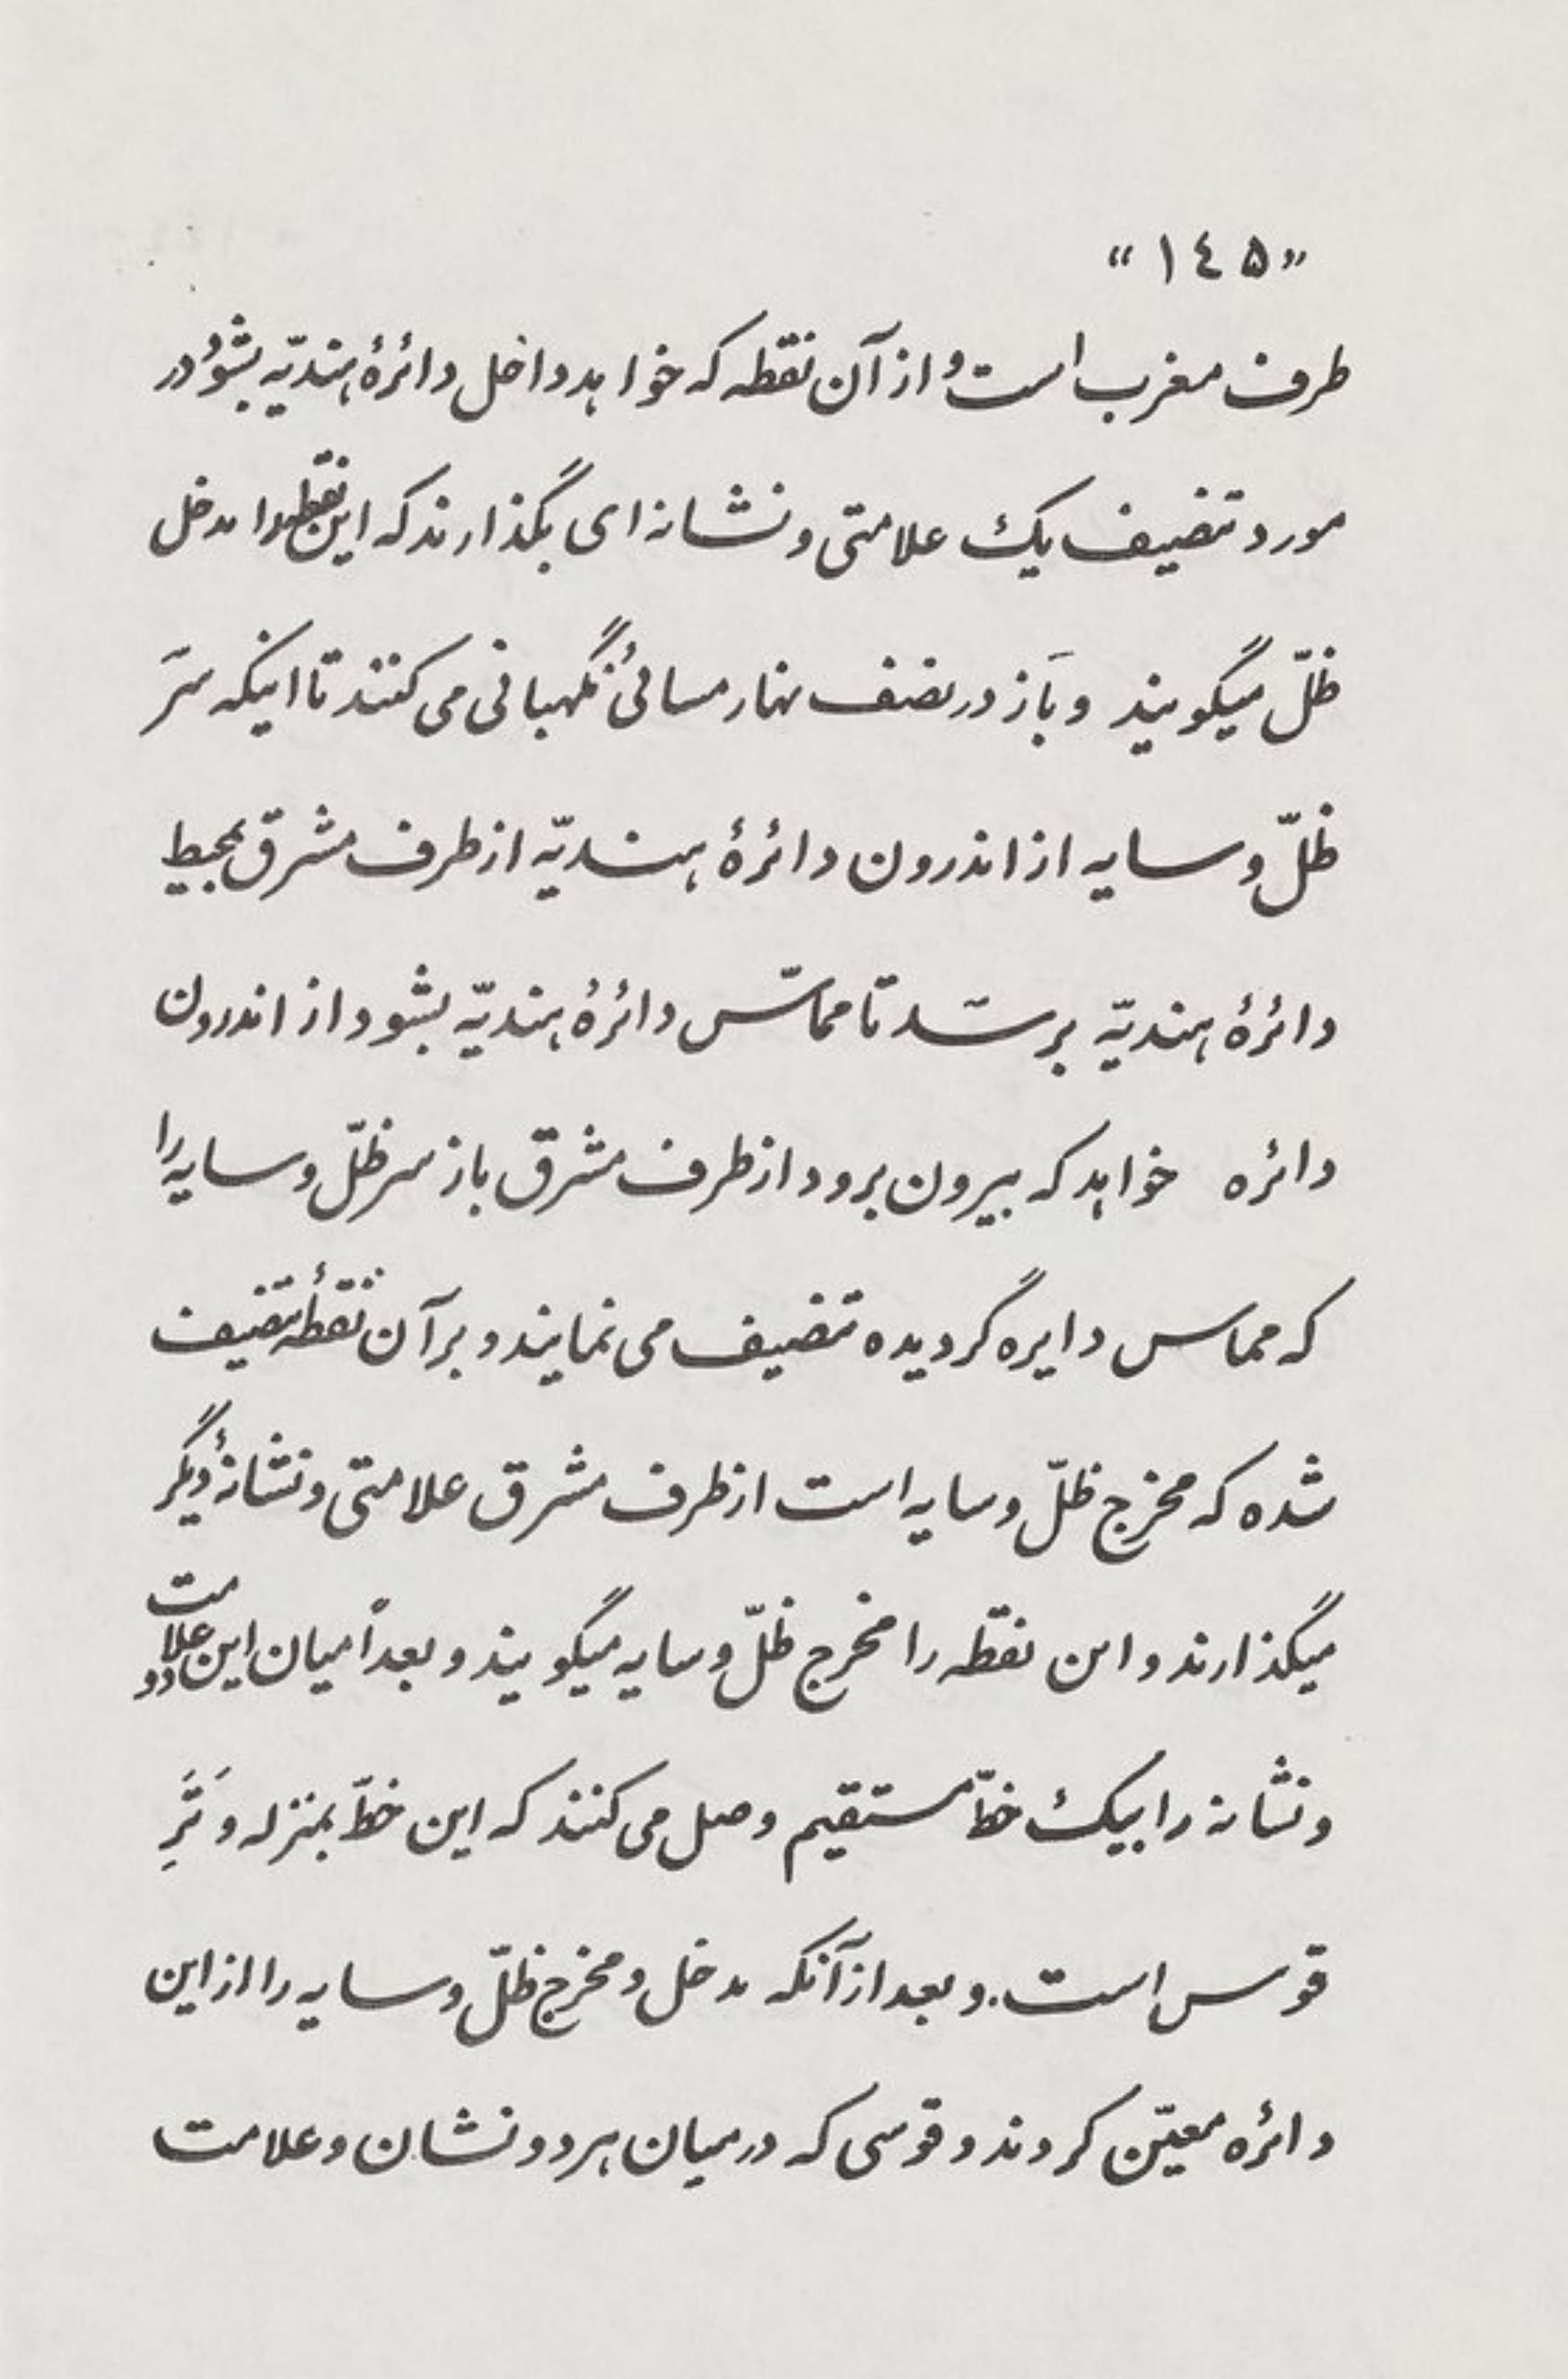 «۱۴۵»
طرف مغرب است و از آن نقطه که خواهد داخل دائرهٔ هندیّه بشود در
مورد تنصیف یک علامتی و نشانه‌ای بگذارند که این نقطه را مدخل
ظلّ میگویند و بَاز در نصف نهار مسائی نگهبانی می‌کنند تا اینکه سَر
ظلّ و سایه از اندرون دائرهٔ هندیّه از طرف مشرق بمحیط
دائرهٔ هندیّه برسَد تا مماسّ دائرهٔ هندیّه بشود از اندرون
دائره خواهد که بیرون برود از طرف مشرق باز سر ظلّ و سایه را
که مماس دایره گردیده تنصیف می نمایند و بر آن نقطهٔ تنصیف
شده که مخرج ظلّ و سایه است از طرف مشرق علامتی و نشانهٔ دیگر
میگذارند و این نقطه را مخرج ظلّ و سایه میگویند و بعداً میان این دو علامت
و نشانه را بیک خطّ مستقیم وصل می کنند که این خطّ بمنزله وَتَرِ
قوس است. و بعد از آنکه مدخل و مخرج ظلّ و سایه را از این
دائره معیّن کردند و قوسی که در میان هر دو نشان و علامت